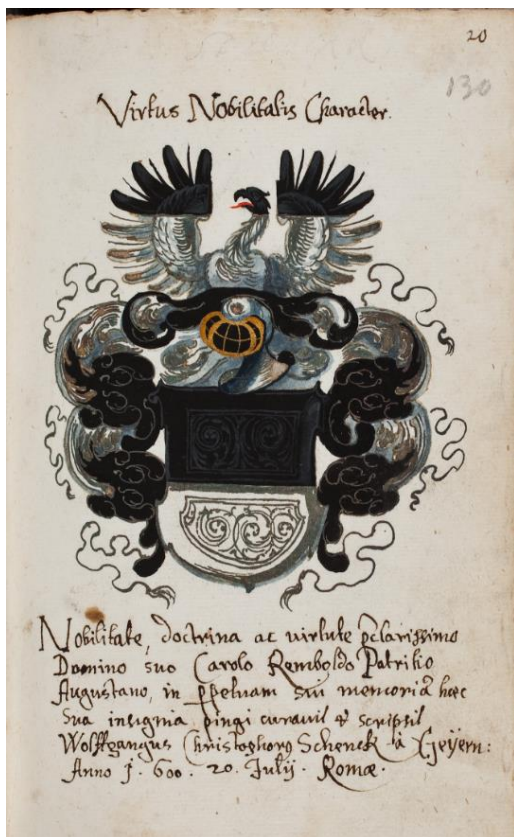 20
130
Virtus Nobilitatis Character.
Nobilitate, doctrina ac virtute p̄clarissimo
Domino suo Carolo Remboldo Patritio
Augustano, in ꝑpetuam sui memoriã haec
sua insignia pingi curavit & scripsit
Wolffgangus Christophorus Schenck à Geÿern:
Anno 1.600. 20. Julij. Romæ.